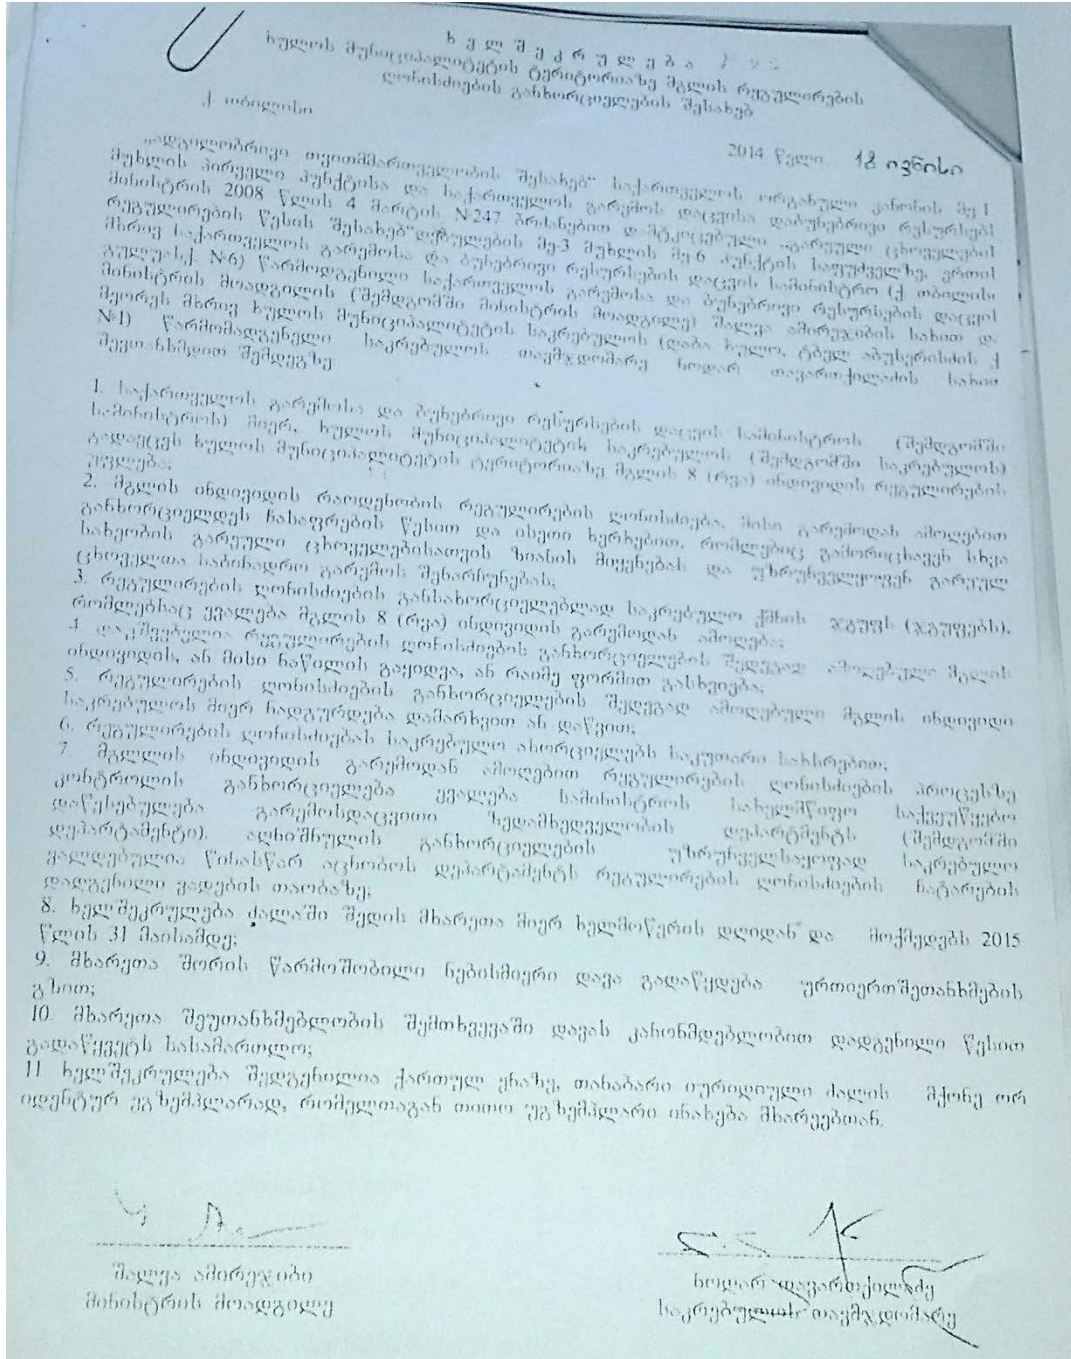 ხ ე ლ შ ე კ რ უ ლ ე ბ ა
ხულოს მუნიციპალიტეტის ტერიტორიაზე მგლის რეგულირების
ღონისძიების განხორციელების შესახებ
ქ. თბილისი
2014 წელი 18 ივნისი
„ადგილობრივი თვითმმართველობის შესახებ“ საქართველოს ორგანული კანონის მე-
მუხლის პირველი პუნქტისა და საქართველოს გარემოს დაცვისა და ბუნებრივი რესურსებ
მინისტრის 2008 წლის 4 მარტის N247 ბრძანებით დამტკიცებული „გარეული ცხოველების
რეგულირების წესის შესახებ“ დებულების მე-3 მუხლის მე-6 პუნქტის საფუძველზე, ერთის
მხრივ საქართველოს გარემოსა და ბუნებრივი რესურსების დაცვის სამინისტრო (ქ. თბილისი
გულუას ქ. N6) წარმოდგენილი საქართველოს გარემოსა და ბუნებრივი რესურსების დაცვის
მინისტრის მოადგილის (შემდგომში მინისტრის მოადგილე) შალვა ამირეჯიბის სახით და
მეორეს მხრივ ხულოს მუნიციპალიტეტის საკრებულოს (დაბა ხულო, ტბელ აბუსერიძის ქ
N1) წარმომადგენელი საკრებულოს თავმჯდომარე ნოდარ თავართქილაძის სახით
შევთანხმდით შემდეგზე:
1. საქართველოს გარემოსა და ბუნებრივი რესურსების დაცვის სამინისტროს (შემდგომში
სამინისტროს) მიერ, ხულოს მუნიციპალიტეტის საკრებულოს (შემდგომში საკრებულოს)
გადაეცეს ხულოს მუნიციპალიტეტის ტერიტორიაზე მგლის 8 (რვა) ინდივიდის რეგულირების
უფლება;
2. მგლის ინდივიდის რაოდენობის რეგულირების ღონისძიება, მისი გარემოდან ამოღებით
განხორციელდეს ჩასაფრების წესით და ისეთი ხერხებით, რომლებიც გამორიცხავენ სხვა
სახეობის გარეული ცხოველებისათვის ზიანის მიყენებას და უზრუნველყოფენ გარეულ
ცხოველთა საბინადრო გარემოს შენარჩუნებას;
3. რეგულირების ღონისძიების განსახორციელებლად საკრებულო ქმნის ჯგუფს (ჯგუფებს),
რომლებსაც ევალება მგლის 8 (რვა) ინდივიდის გარემოდან ამოღება;
4. რეგულირების ღონისძიების განხორციელების შედეგად ამოღებული მგლის
ინდივიდის, ან მისი ნაწილის გაყიდვა, ან რაიმე ფორმით გასხვისება;
5. რეგულირების ღონისძიების განხორციელების შედეგად ამოღებული მგლის ინდივიდი
საკრებულოს მიერ ნადგურდება დამარხვით ან დაწვით;
6. რეგულირების ღონისძიებას საკრებულო ახორციელებს საკუთარი სახსრებით;
7. მგლის ინდივიდის გარემოდან ამოღებით რეგულირების ღონისძიების პროცესზე
კონტროლის განხორციელება ევალება სამინისტროს სახელმწიფო საქვეუწყებო
დაწესებულება გარემოსდაცვითი ზედამხედველობის დეპარტმენტს (შემდგომში
დეპარტამენტი). აღნიშნულის განხორციელების უზრუნველსაყოფად საკრებულო
ვალდებულია წინასწარ აცნობოს დეპარტამენტს რეგულირების ღონისძიების ჩატარების
დადგენილი ვადების თაობაზე;
8. ხელშეკრულება ძალაში შედის მხარეთა მიერ ხელმოწერის დღიდან და მოქმედებს 2015
წლის 31 მაისამდე;
9. მხარეთა შორის წარმოშობილი ნებისმიერი დავა გადაწყდება ურთიერთშეთანხმების
გზით;
10. მხარეთა შეუთანხმებლობის შემთხვევაში დავას კანონმდებლობით დადგენილი წესით
გადაწყვეტს სასამართლო;
11 ხელშეკრულება შედგენილია ქართულ ენაზე, თანაბარი იურიდიული ძალის მქონე ორ
იდენტურ ეგზემპლარად, რომელთაგან თითო ეგზემპლარი ინახება მხარეებთან.
შალვა ამირეჯიბი
მინისტრის მოადგილე
ნოდარ თავართქილაძე
საკრებულოს თავმჯდომარე